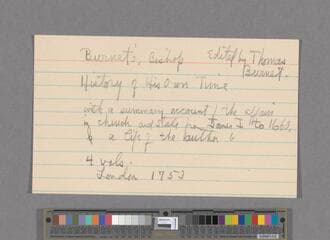 Burnet's, Bishop Edited by Thomas
Burnet.
History of His Own Time
with a summary account / the affairs
of church and state from James I to 1660,
& a life of the author
4 vols.
London 1753